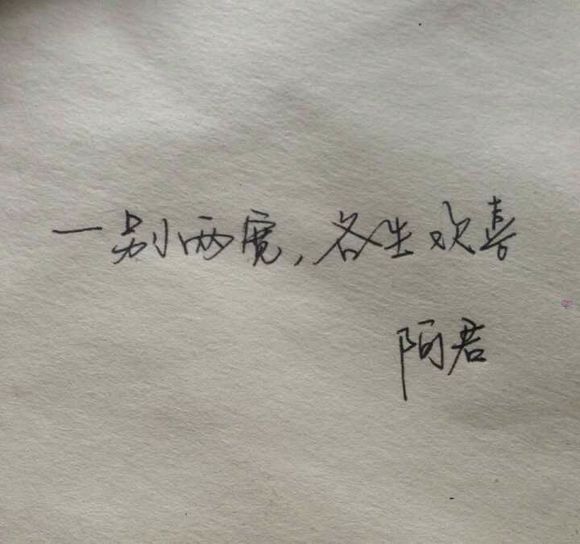 一别两宽，各生欢喜
阿君